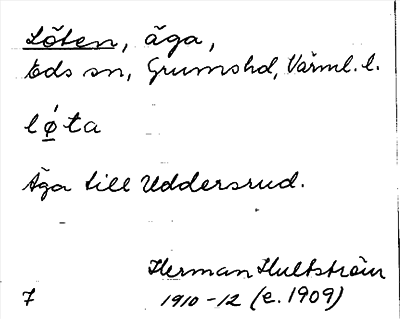 Löten, äga,
Eds sn, Grumshd, Värml. l.
lǿta
Äga till Uddersrud.
Herman Hultström
7 1910-12 (e. 1909)